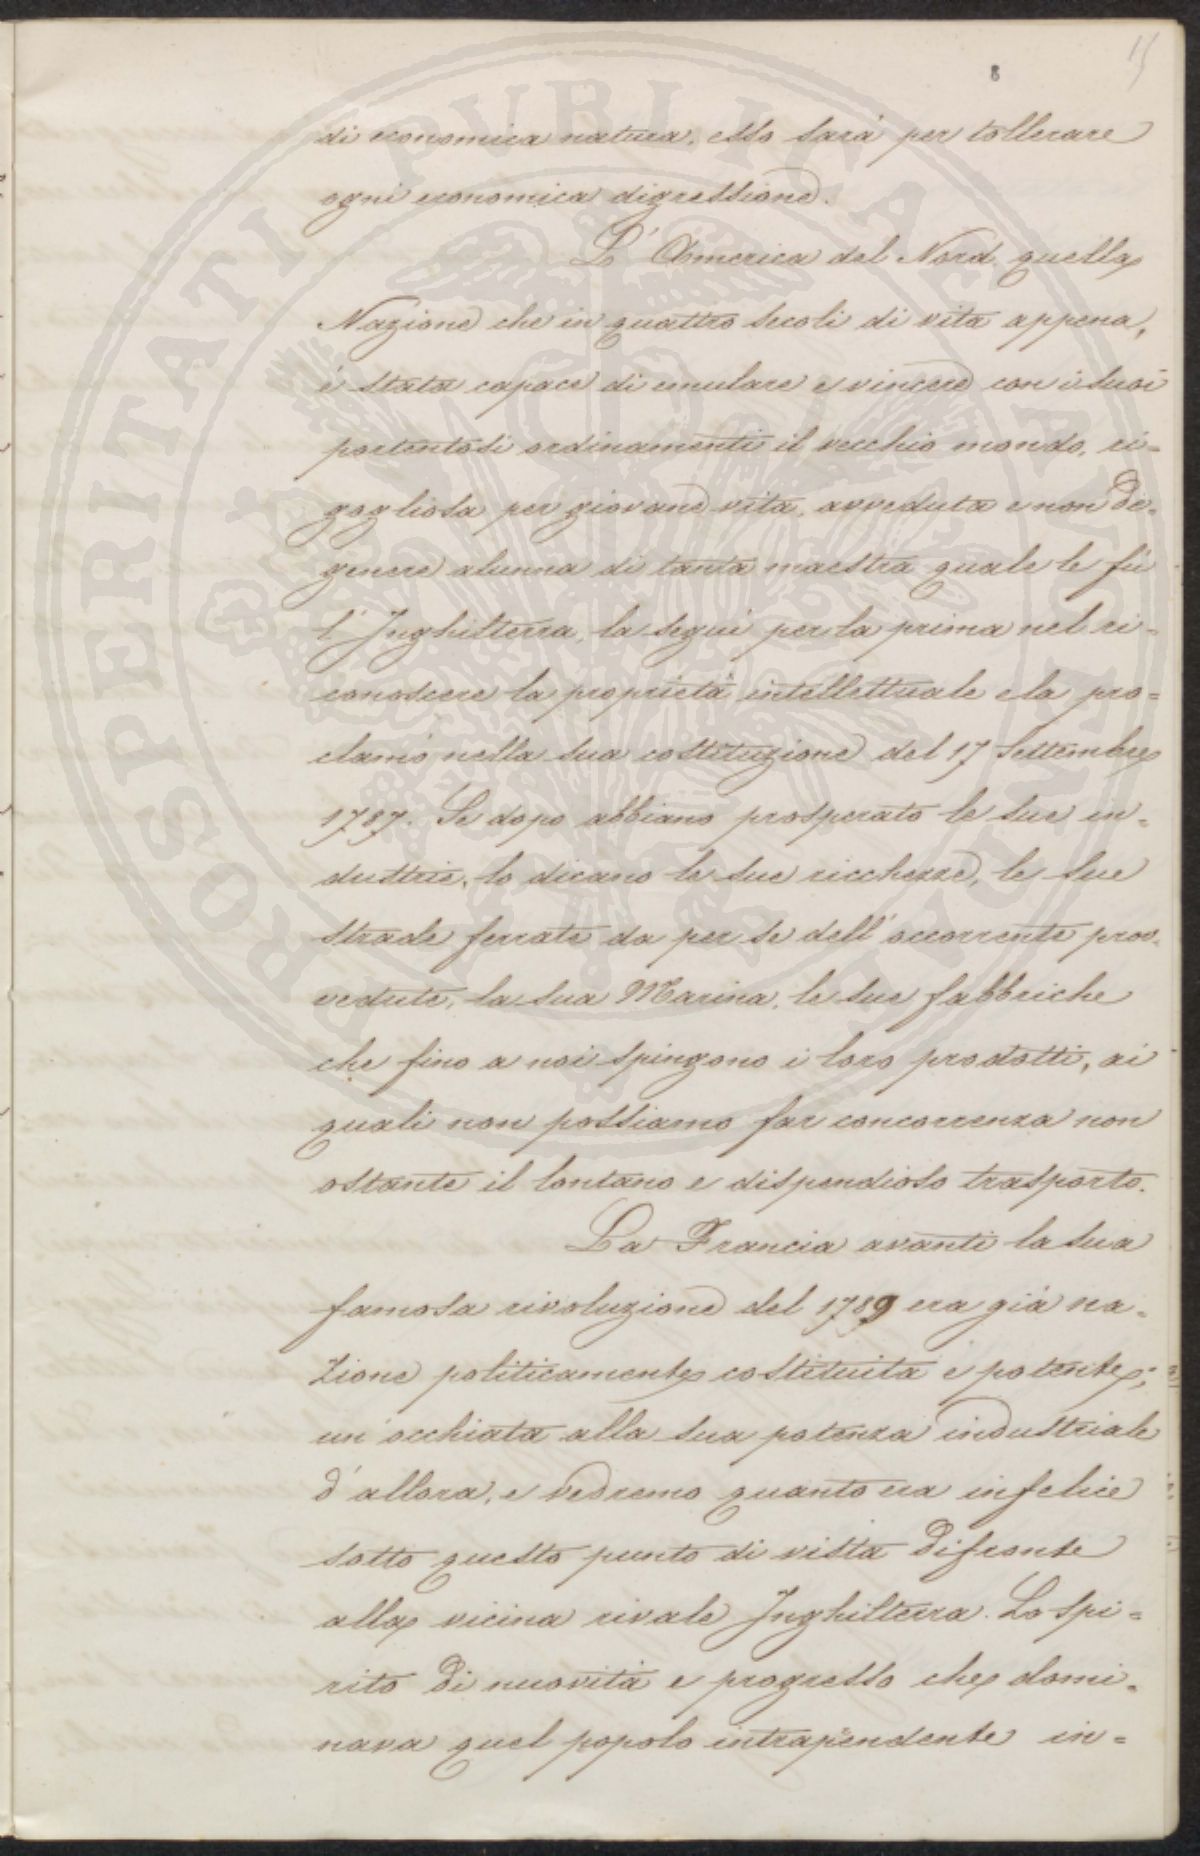 15
8
di economica natura, esso sarà per tollerare
ogni economica digressione.
L'America del Nord quella
Nazione che in quattro secoli di vita appena,
è stata capace di emulare e vincere con i suoi
portentosi ordinamenti il vecchio mondo, ri=
gogliosa per giovane vita, avveduta e non de=
genere alunna di tanta maestra quale le fù
l'Inghilterra, la seguì per la prima nel ri=
conoscere la proprietà intellettuale e la pro=
clamò nella sua costituzione del 17 Settembre
1787. Se dopo abbiano prosperato le sue in=
dustrie, lo dicano le sue ricchezze, le sue
strade ferrate da per se dell'occorrente prov=
vedute, la sua Marina, le sue fabbriche
che fino a noi spingono i loro prodotti, ai
quali non possiamo far concorrenza non
ostante il lontano e dispendioso trasporto.
La Francia avanti la sua
famosa rivoluzione del 1789 era già na=
zione politicamente costituita e potente;
un'occhiata alla sua potenza industriale
d'allora, e vedremo quanto era infelice
sotto questo punto di vista difronte
alla vicina rivale Inghilterra. Lo spi=
rito di nuovità e progresso che domi=
nava quel popolo intraprendente in=
PROSPERITATI PUBLICAE AUGENDAE